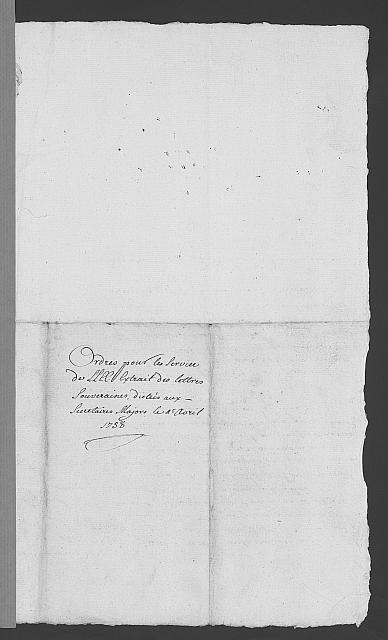 Ordres pour les Service
de LLEE Extrait des lettres
Souveraines, dictées aux –
Secretaires Majors le 1er Avril
1758